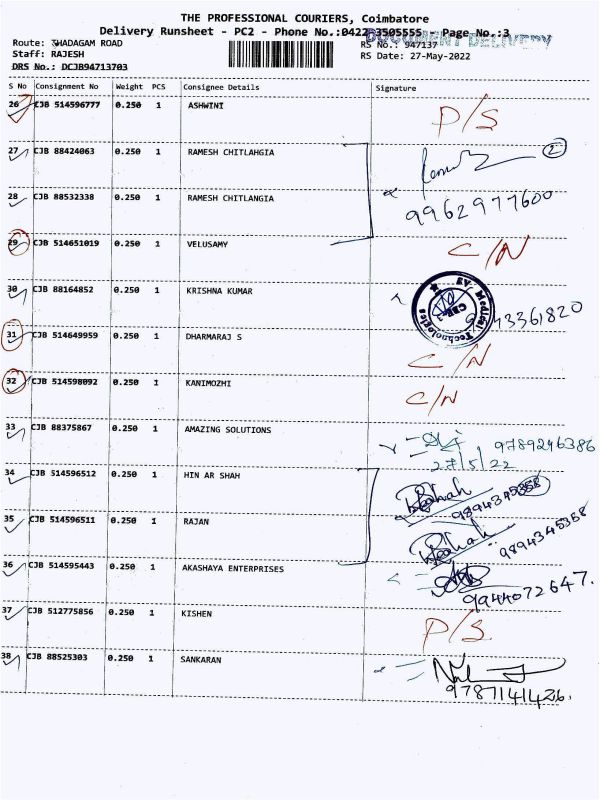 THE PROFESSIONAL COURIERS, Coimbatore
Delivery Runsheet - PC2 - Phone No.:0422 3505555 - Page No.:3
DOCUMENT DELIVERY
Route: THADAGAM ROAD
RS No.: 947137
Staff: RAJESH
RS Date: 27-May-2022
DRS No.: DCJB94713703
S No Consignment No Weight PCS Consignee Details Signature
26 CJB 514596777 0.250 1 ASHWINI P/S
27 CJB 88424063 0.250 1 RAMESH CHITLAHGIA 2
28 CJB 88532338 0.250 1 RAMESH CHITLANGIA 9962977600
29 CJB 514651019 0.250 1 VELUSAMY C/N
30 CJB 88164852 0.250 1 KRISHNA KUMAR 43361820
Medical Technologies
31 CJB 514649959 0.250 1 DHARMARAJ S C/N
32 CJB 514598092 0.250 1 KANIMOZHI C/N
33 CJB 88375867 0.250 1 AMAZING SOLUTIONS 9789246386
27/5/22
34 CJB 514596512 0.250 1 HIN AR SHAH 9894345358
35 CJB 514596511 0.250 1 RAJAN 9894345358
36 CJB 514595443 0.250 1 AKASHAYA ENTERPRISES 9944072647.
37 CJB 512775856 0.250 1 KISHEN P/S
38 CJB 88525303 0.250 1 SANKARAN
9787141426.